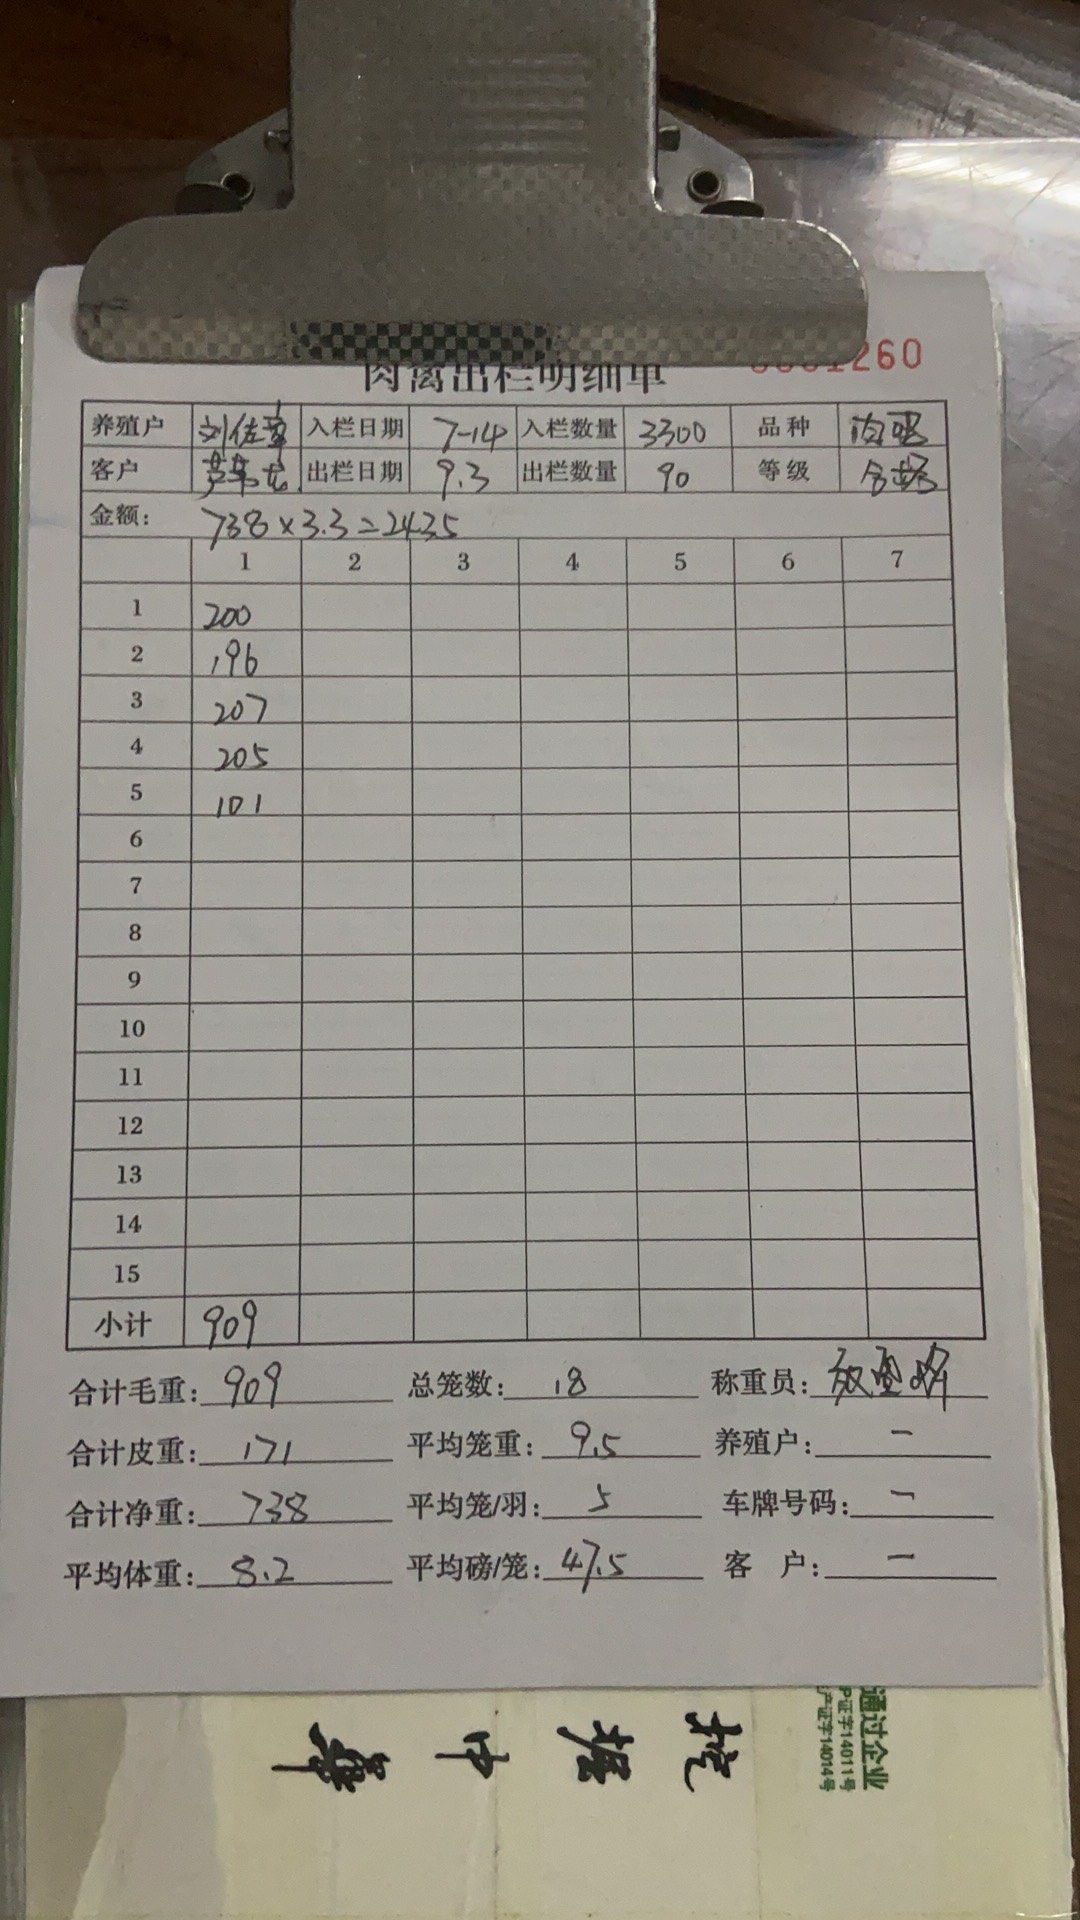 肉禽出栏明细单 0001260
养殖户 刘佐章 入栏日期 7-14 入栏数量 3300 品种
客户 出栏日期 9.3 出栏数量 90 等级 合格
金额: 738×3.3=2435
1 2 3 4 5 6 7
1 200
2 196
3 207
4 205
5 101
6
7
8
9
10
11
12
13
14
15
小计 909
合计毛重: 909 总笼数: 18 称重员:
合计皮重: 171 平均笼重: 9.5 养殖户: 一
合计净重: 738 平均笼/羽: 5 车牌号码: 一
平均体重: 8.2 平均磅/笼: 47.5 客 户: 一
通过企业
证字14011号
产证字14014号